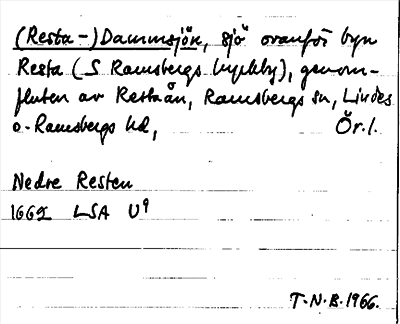 (Resta-)Dammsjön, sjö ovanför byn
Resta (S Ramsbergs kyrkby), genom-
fluten av Restaån, Ramsbergs sn, Lindes
o. Ramsbergs hd, Ör. l.
Nedre Resten
1662 LSA U9
T.N.B. 1966.